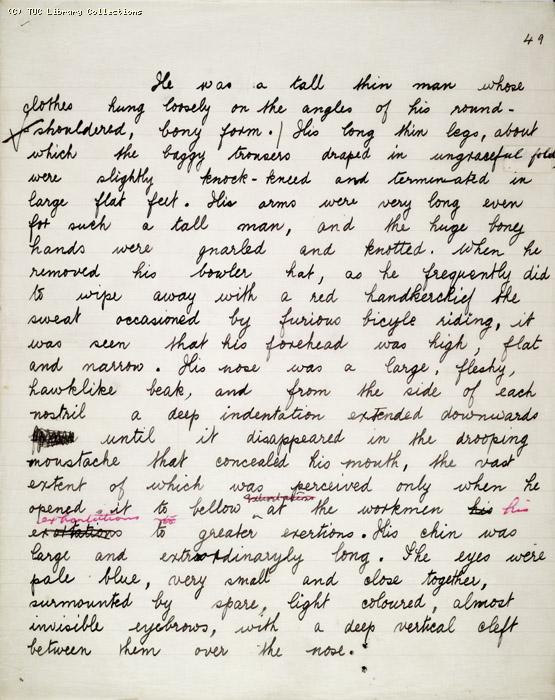 (C) TUC Library Collections
49
He was a tall thin man whose
clothes hung loosely on the angles of his round-
shouldered, bony form. / His long thin legs, about
which the baggy trousers draped in ungraceful fold
were slightly knock-kneed and terminated in
large flat feet. His arms were very long even
for such a tall man, and the huge bony
hands were gnarled and knotted. When he
removed his bowler hat, as he frequently did
to wipe away with a red handkerchief the
sweat occasioned by furious bicycle riding, it
was seen that his forehead was high, flat
and narrow. His nose was a large, fleshy,
hawklike beak, and from the side of each
nostril a deep indentation extended downwards
until it disappeared in the drooping
moustache that concealed his mouth, the vast
extent of which was perceived only when he
opened it to bellow at the workmen his his
exhortations
to greater exertions. His chin was
large and extraordinaryly long. The eyes were
pale blue, very small and close together,
surmounted by spare, light coloured, almost
invisible eyebrows, with a deep vertical cleft
between them over the nose.